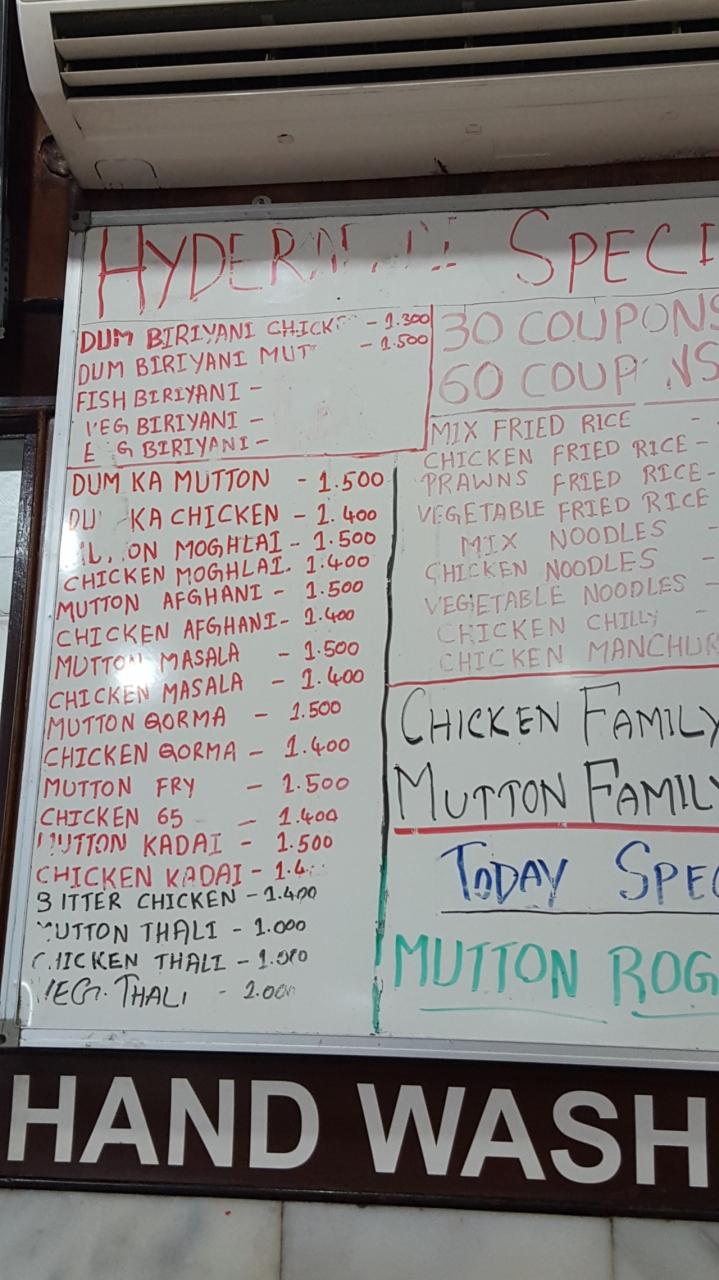 HYDERA SPECI
DUM BIRIYANI CHICK - 1.300
DUM BIRIYANI MUT - 1.500
FISH BIRIYANI -
VEG BIRIYANI -
E G BIRIYANI -
DUM KA MUTTON - 1.500
DU KA CHICKEN - 1.400
MOGHLAI - 1.500
CHICKEN MOGHLAI. 1.400
MUTTON AFGHANI - 1.500
CHICKEN AFGHANI - 1.400
MUTTON MASALA - 1.500
CHICKEN MASALA - 1.400
MUTTON QORMA - 1.500
CHICKEN QORMA - 1.400
MUTTON FRY - 1.500
CHICKEN 65 - 1.400
MUTTON KADAI - 1.500
CHICKEN KADAI - 1.4
BITTER CHICKEN - 1.400
MUTTON THALI - 1.000
CHICKEN THALI - 1.000
VEG. THALI - 1.000
30 COUPONS
60 COUPONS
MIX FRIED RICE -
CHICKEN FRIED RICE -
PRAWNS FRIED RICE -
VEGETABLE FRIED RICE
MIX NOODLES -
CHICKEN NOODLES -
VEGIETABLE NOODLES -
CHICKEN CHILLY -
CHICKEN MANCHUR
CHICKEN FAMILY
MUTTON FAMILY
TODAY SPEC
MUTTON ROG
HAND WASH